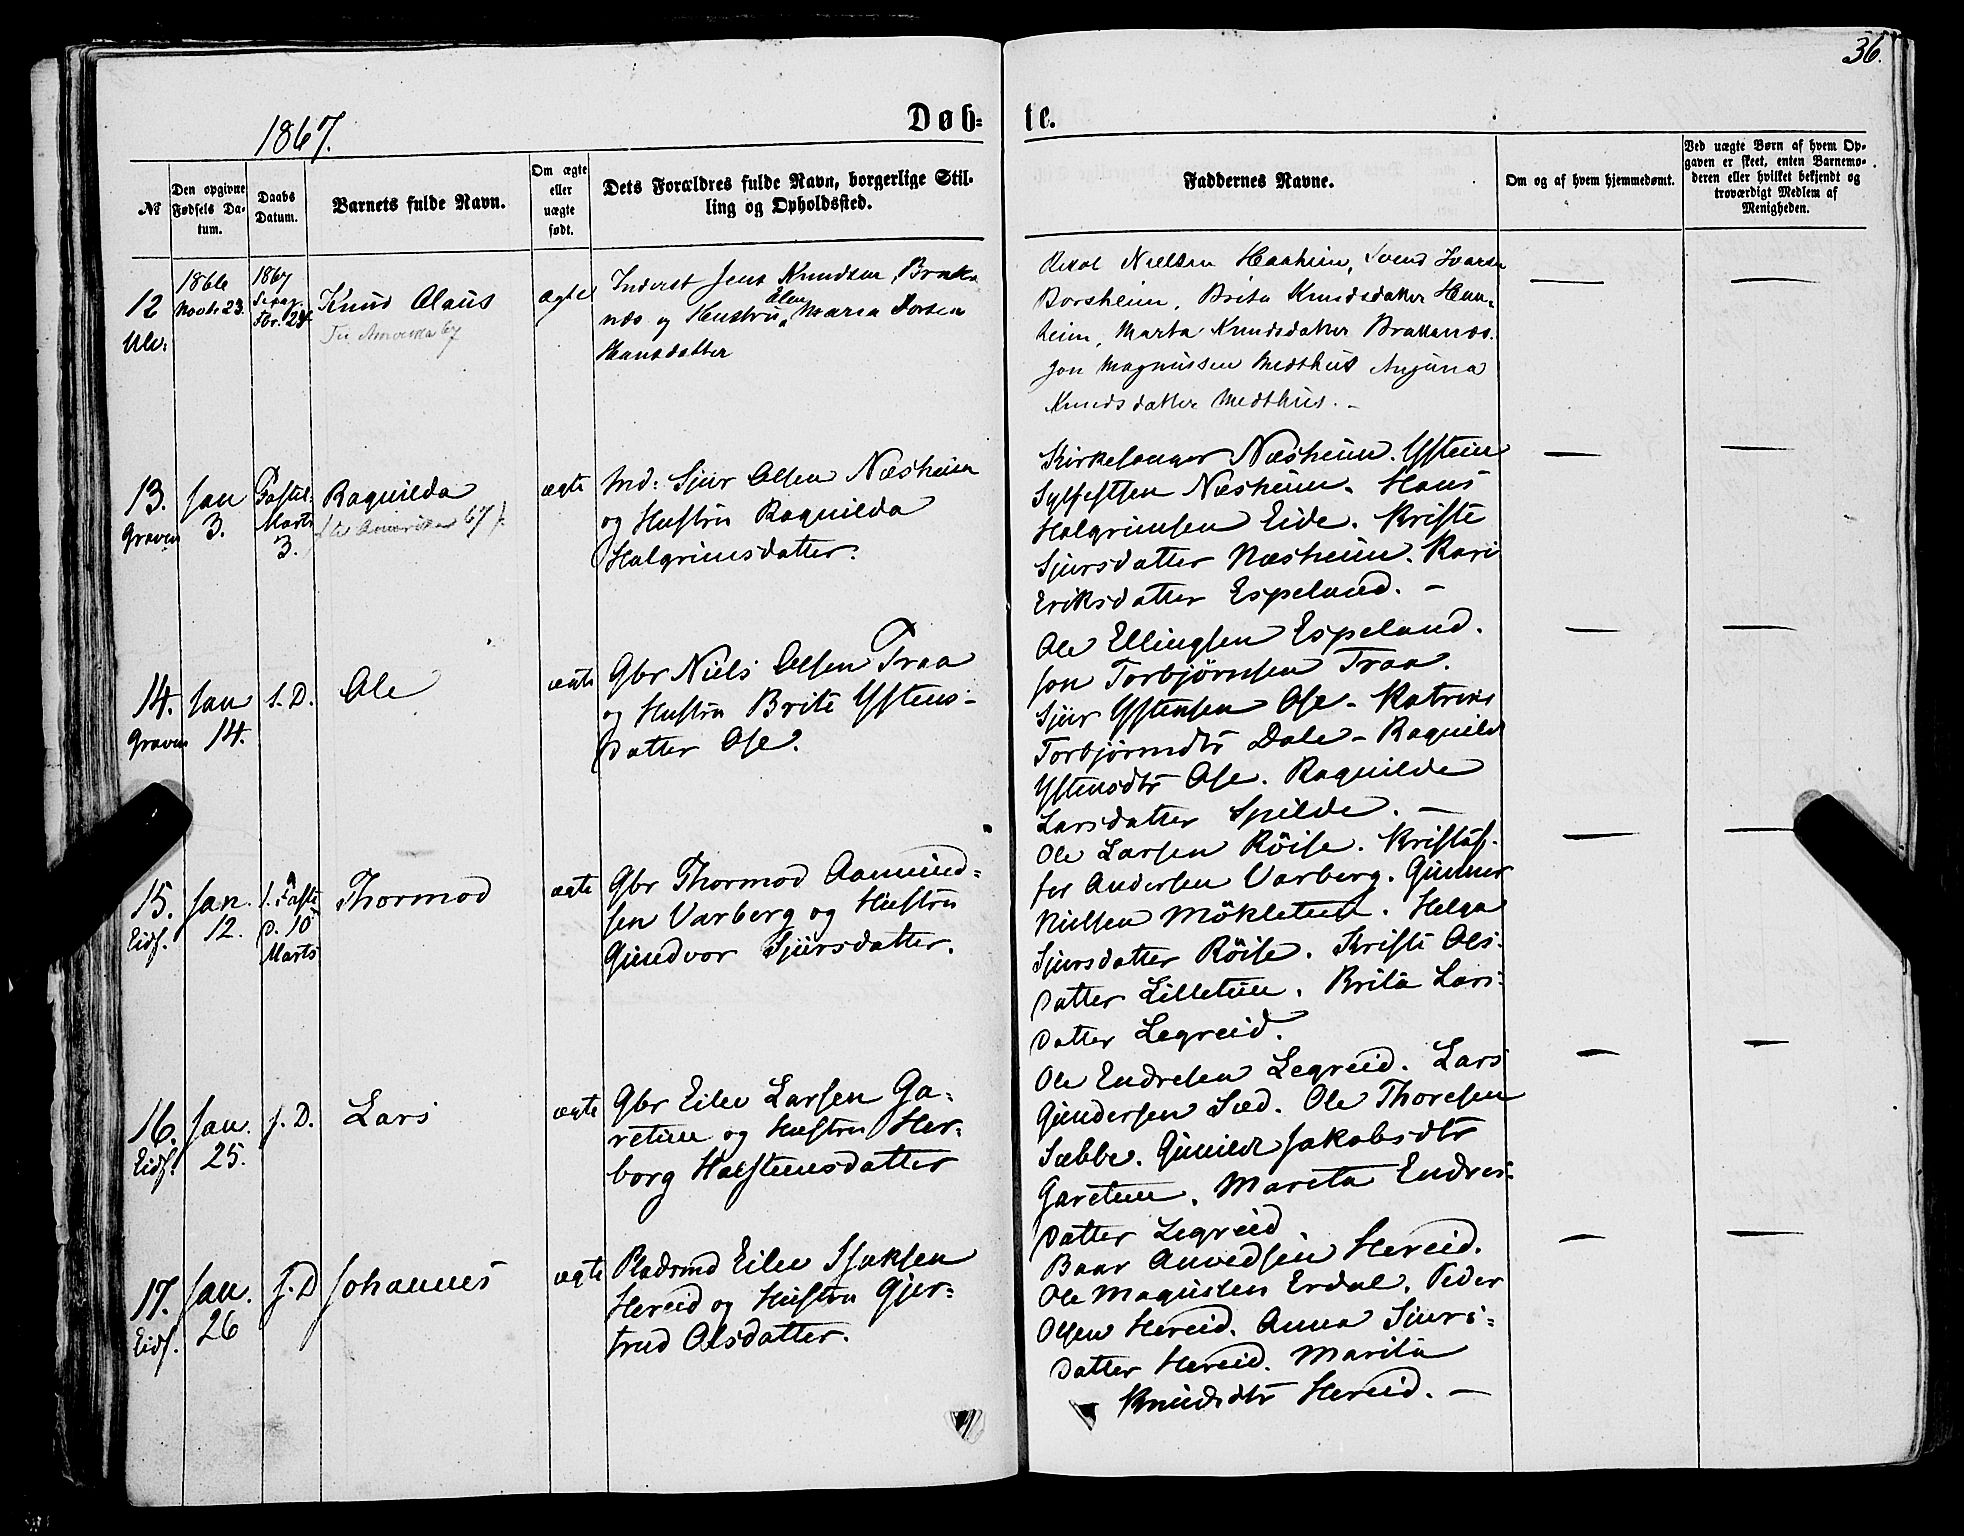 36.
1867.
Døb-
te.
No
Den opgivne Fødsels Da-
tum.
Daabs
Datum.
Barnets fulde Navn.
Om ægte
eller
uægte
født.
Dets Forældres fulde Navn, borgerlige Stil-
ling og Opholdssted.
Faddernes Navne.
Om og af hvem hjemmedøbt.
Ved uægte Børn af hvem Op-
gaven er skeet, enten Barnemo-
deren eller hvilket bekjendt og
troværdigt Medlem af
Menigheden.
12
Ulv:
1866
Novbr 23.
1867
Febr. 24
Knud Olaus
Til Amerika 67
ægte
Inderst Jens Knudsen Brake-
næs og Hustru Elen Maria
Hansdatter
Nielsen Haaheim, Svend Ivarsen
Borsheim, Brita Knudsdatter Haa-
heim, Marta Knudsdatter Brakenæs.
Jon Magnussen Medthus
Knudsdatter Medthus. -
13.
Graven
Jan
3.
Fastel.
Marts
3.
Ragnilda
(til Amerika 67).
ægte
Ind: Sjur Olsen Næsheim
og Hustru Ragnilda
Halgrimsdatter.
Kirkesanger Næsheim. Ystein
Sylfestsen Næsheim. Hans
Halgrimsen Eide. Kristi
Sjursdatter Næsheim. Kari
Eriksdatter Espeland. -
14.
Graven
Jan
14.
s. D.
Ole
ægte
Gbr Niels Olsen Traa
og Hustru Brite Ystens-
datter Ose.
Ole Ellingsen Espeland.
Jon Torbjørnsen Traa.
Sjur Ystensen Ose - Katrine
Torbjørnsdtr Dale - Ragnild
Ystensdtr Ose. Ragnilde
Larsdatter Spilde. -
15.
Eidf.
Jan.
12.
1. Faste
D. 10
Marts
Thormod
ægte
Gbr Thormod Aamund-
sen Varberg og Hustru
Gundvor Sjursdatter.
Ole Larsen Röise. Kristof-
fer Andersen Varberg. Gunner
Nielsen Mökletun. Helga
Sjursdatter Röise. Kristi Ols-
datter Lilletun. Brita Lars-
datter Legreid.
16.
Eidf.
Jan.
25.
s. D.
Lars
ægte
Gbr Eilev Larsen Ga-
retun og Hustru Her-
borg Halstensdatter
Ole Endresen Legreid. Lars
Gundersen Sæd. Ole Thoresen
Sæbbe. Gunild Jakobsdtr
Garetun. Marita Endres-
datter Legreid
17.
Eidf.
Jan.
26
s. D
Johannes
ægte
Pladsmd Eilev Isaksen
Hereid og Hustru Gjer-
trud Olsdatter.
Baar Anvedsen Hereid.
Ole Magnusen Erdal. Peder
Olsen Hereid. Anna Sjurs-
datter Hereid. Marita
Knudsdtr Hereid. -